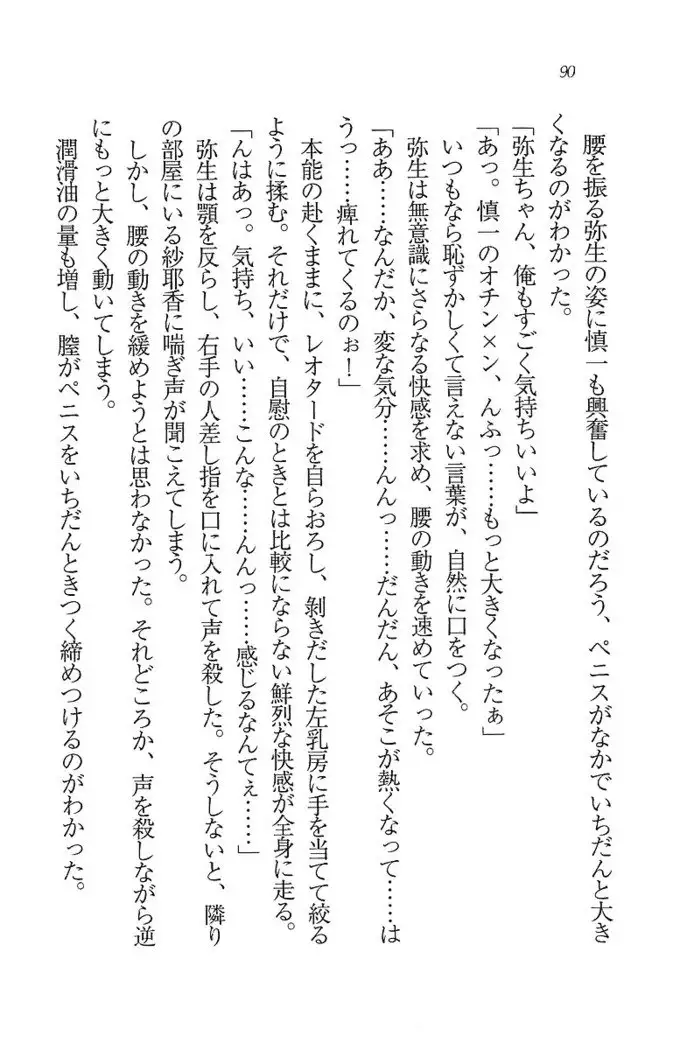 90
腰を振る弥生の姿に慎一も興奮しているのだろう、ペニスがなかでいちだんと大き
くなるのがわかった。
「弥生ちゃん、俺もすごく気持ちいいよ」
「あっ。慎一のオチン×ン、んふっ……もっと大きくなったぁ」
いつもなら恥ずかしくて言えない言葉が、自然に口をつく。
弥生は無意識にさらなる快感を求め、腰の動きを速めていった。
「ああ……なんだか、変な気分……んんっ……だんだん、あそこが熱くなって……は
うっ……痺れてくるのぉ！」
本能の赴くままに、レオタードを自らおろし、剝きだした左乳房に手を当てて絞る
ように揉む。それだけで、自慰のときとは比較にならない鮮烈な快感が全身に走る。
「んはあっ。気持ち、いい……こんな……んんっ……感じるなんてぇ……」
弥生は顎を反らし、右手の人差し指を口に入れて声を殺した。そうしないと、隣り
の部屋にいる紗耶香に喘ぎ声が聞こえてしまう。
しかし、腰の動きを緩めようとは思わなかった。それどころか、声を殺しながら逆
にもっと大きく動いてしまう。
潤滑油の量も増し、膣がペニスをいちだんときつく締めつけるのがわかった。